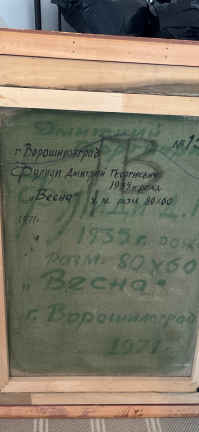 Дмитрий
№
г. Ворошиловград
Дмитрий Георгиевич
1935 г. рожд
"Весна" х. м. разм 80х60
1971г.
Д. Г.
1935 г. рож
разм. 80х60
"Весна"
г. Ворошиловград
1971